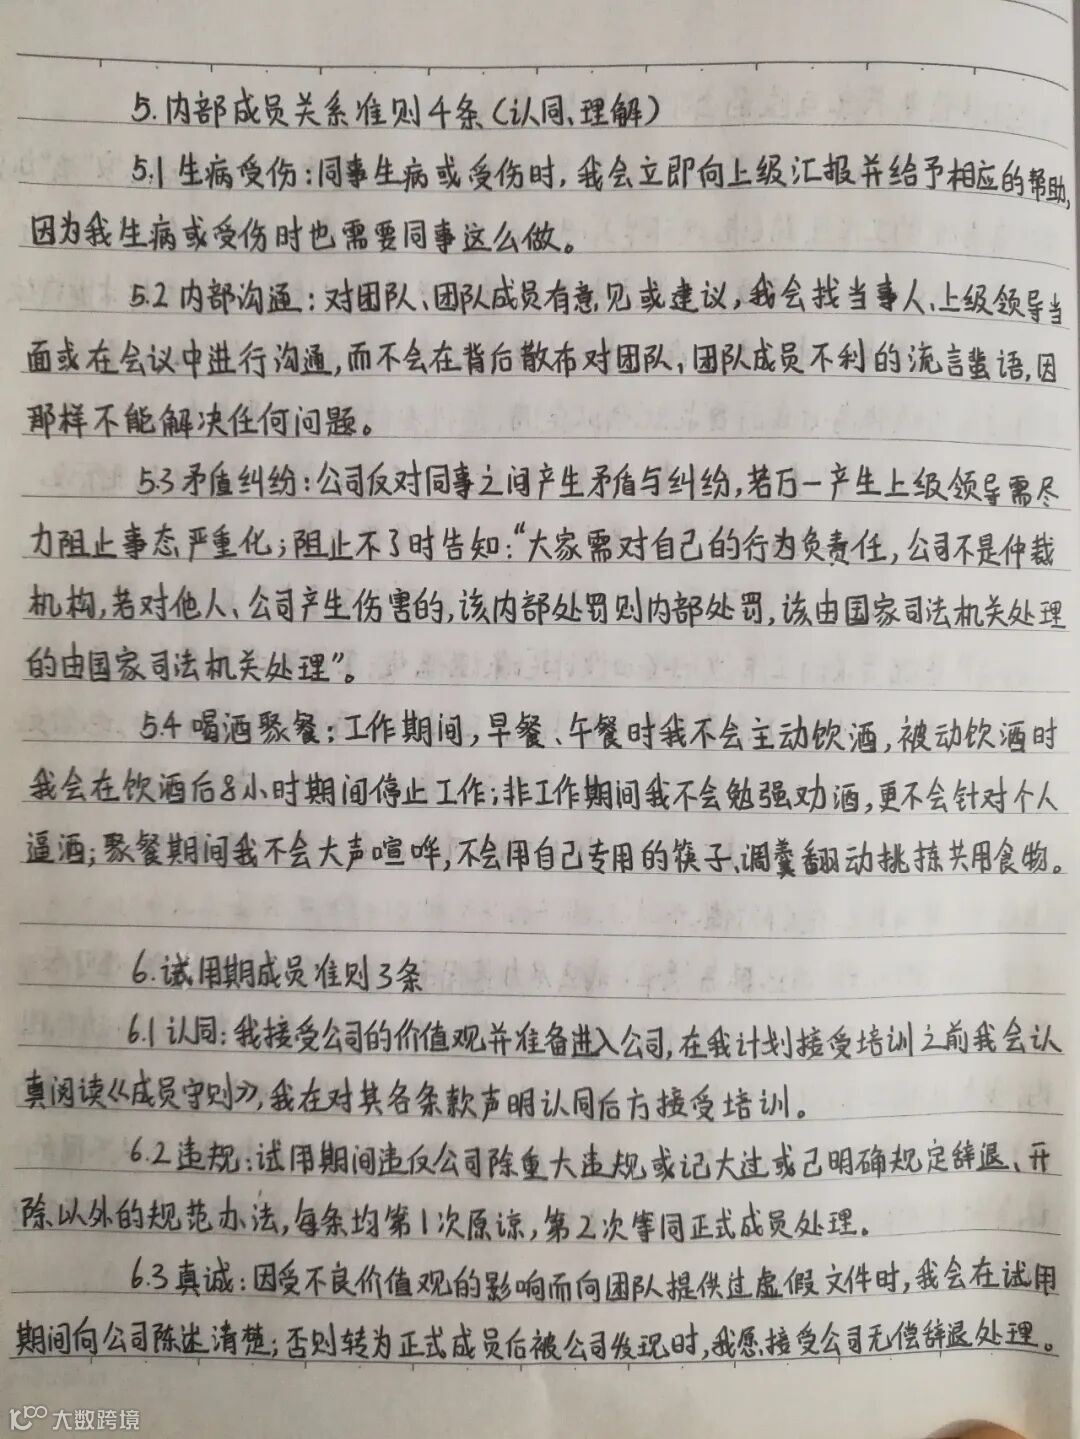 5.内部成员关系准则4条(认同、理解)
5.1生病受伤:同事生病或受伤时,我会立即向上级汇报并给予相应的帮助,
因为我生病或受伤时也需要同事这么做。
5.2内部沟通:对团队、团队成员有意见或建议,我会找当事人、上级领导当
面或在会议中进行沟通,而不会在背后散布对团队、团队成员不利的流言蜚语,因
那样不能解决任何问题。
5.3矛盾纠纷:公司反对同事之间产生矛盾与纠纷,若万一产生上级领导需尽
力阻止事态严重化;阻止不了时告知:“大家需对自己的行为负责任,公司不是仲裁
机构,若对他人、公司产生伤害的,该内部处罚则内部处罚,该由国家司法机关处理
的由国家司法机关处理”。
5.4喝酒聚餐:工作期间,早餐、午餐时我不会主动饮酒,被动饮酒时
我会在饮酒后8小时期间停止工作;非工作期间我不会勉强劝酒,更不会针对个人
逼酒;聚餐期间我不会大声喧哗,不会用自己专用的筷子、调羹翻动挑拣共用食物。
6.试用期成员准则3条
6.1认同:我接受公司的价值观并准备进入公司,在我计划接受培训之前我会认
真阅读《成员守则》,我在对其各条款声明认同后方接受培训。
6.2违规:试用期间违反公司除重大违规或记大过或已明确规定辞退、开
除以外的规范办法,每条均第1次原谅,第2次等同正式成员处理。
6.3真诚:因受不良价值观的影响而向团队提供过虚假文件时,我会在试用
期间向公司陈述清楚;否则转为正式成员后被公司发现时,我愿接受公司无偿辞退处理。
大数跨境